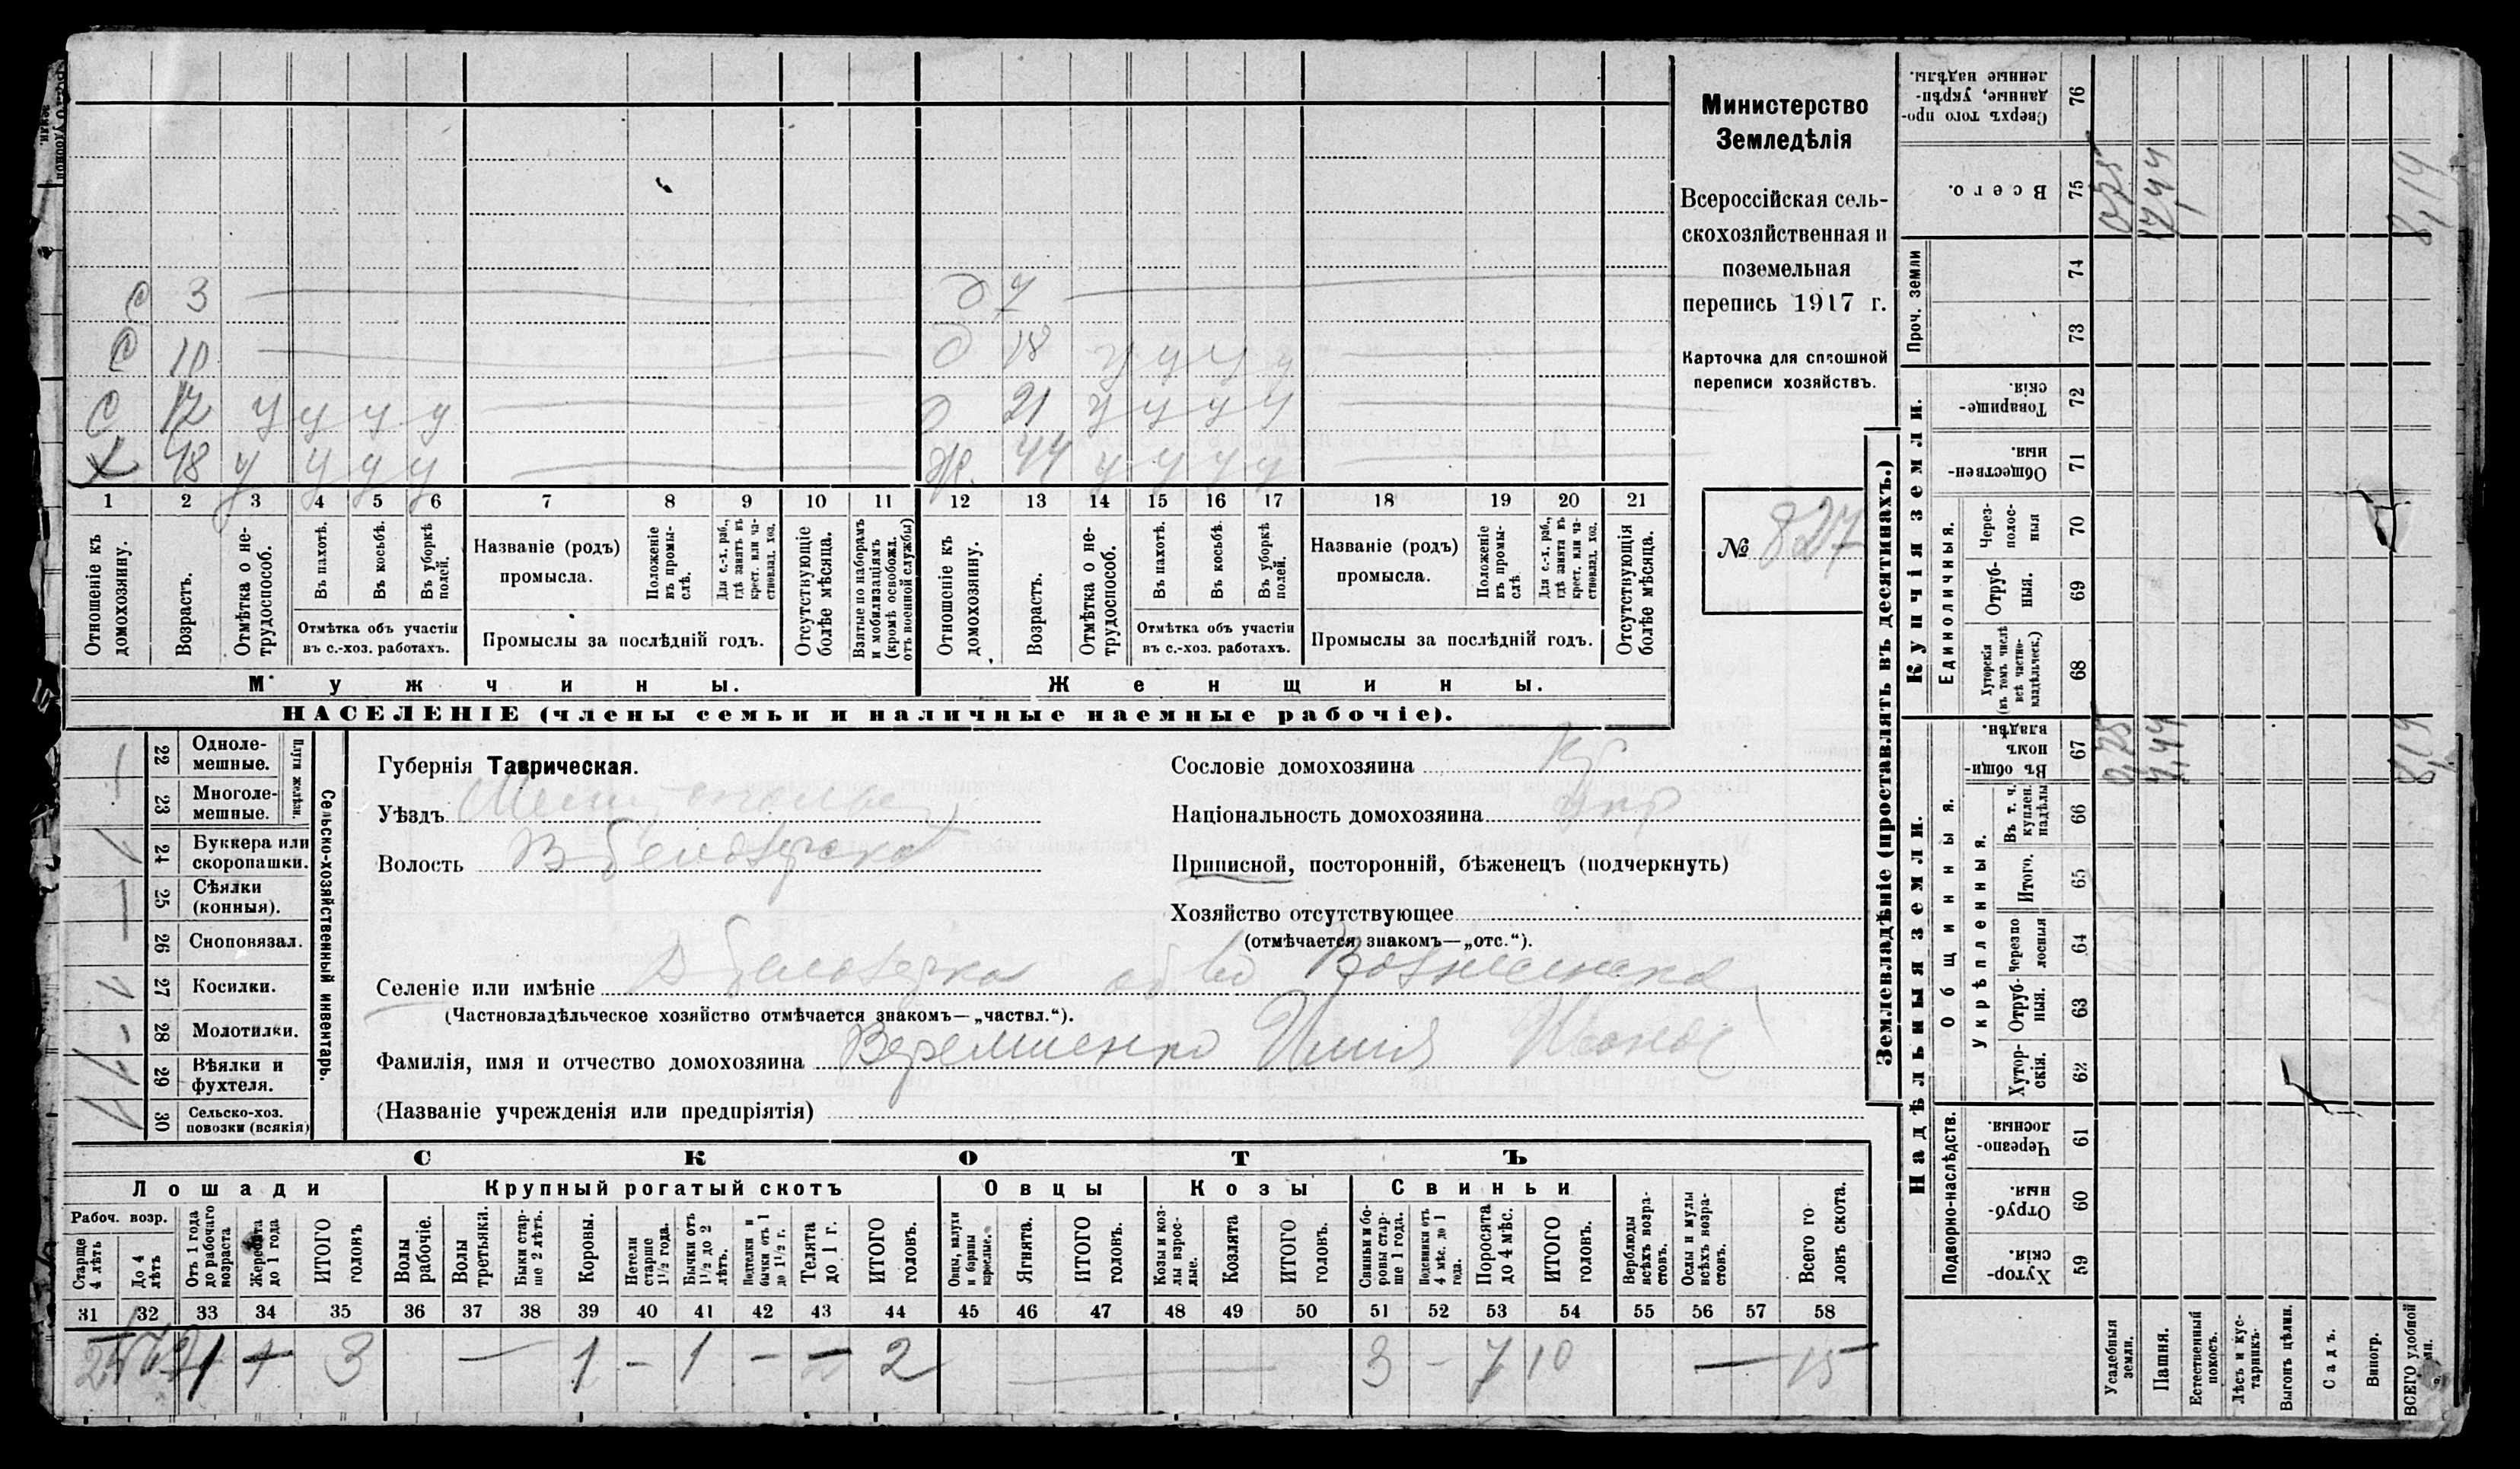 Министерство
Земледѣлія
Всероссійская сель-
скохозяйственная и
поземельная
перепись 1917 г.
Карточка для сплошной
переписи хозяйствъ.
№ 827
С 3
д 7
С 10
д 18 у у у у
С 12 у у у у
д 21 у у у у
Х 48 у у у у
Ж. 44 у у у у
1 2 3 4 5 6 7 8 9 10 11 12 13 14 15 16 17 18 19 20 21
Отношеніе къ домохозяину.
Возрастъ.
Отмѣтка о не-трудоспособ.
Въ пахотѣ.
Въ косьбѣ.
Въ уборкѣ полей.
Отмѣтка объ участіи
въ с.-хоз. работахъ.
Названіе (родъ)
промысла.
Положеніе въ промы-слѣ.
Для с.-х. раб., гдѣ занятъ въ крест. или ча-стновлад. хоз.
Промыслы за послѣдній годъ.
Отсутствующіе болѣе мѣсяца.
Взятые по наборамъ и мобилизаціямъ (кромѣ освобожд. отъ военной службы)
Отношеніе къ домохозяину.
Возрастъ.
Отмѣтка о не-трудоспособ.
Въ пахотѣ.
Въ косьбѣ.
Въ уборкѣ полей.
Отмѣтка объ участіи
въ с.-хоз. работахъ.
Названіе (родъ)
промысла.
Положеніе въ промы-слѣ.
Для с.-х. раб., гдѣ занята въ крест. или ча-стновлад. хоз.
Промыслы за послѣдній годъ.
Отсутствующія болѣе мѣсяца.
Мужчины.
Женщины.
НАСЕЛЕНІЕ (члены семьи и наличные наемные рабочіе).
Сельско-хозяйственный инвентарь.
Плуги желѣзн.
22 Одноле-мешные.
23 Многоле-мешные.
24 Буккера или скоропашки.
25 Сѣялки (конныя).
26 Сноповязал.
27 Косилки.
28 Молотилки.
29 Вѣялки и фухтеля.
30 Сельско-хоз. повозки (всякія)
Губернія Таврическая.
Уѣздъ
Волость В Белозерска
Сословіе домохозяина Кр
Національность домохозяина укр
Приписной, посторонній, бѣженецъ (подчеркнуть)
Хозяйство отсутствующее
(отмѣчается знакомъ—„отс.“).
Селеніе или имѣніе Белозерка об во
(Частновладѣльческое хозяйство отмѣчается знакомъ—„частвл.“).
Фамилія, имя и отчество домохозяина Веремиенко Илия Иванов
(Названіе учрежденія или предпріятія)
СКОТЪ
Лошади
Крупный рогатый скотъ
Овцы
Козы
Свиньи
Рабоч. возр.
Старше 4 лѣтъ
До 4 лѣтъ
Отъ 1 года до рабочаго возраста
Жеребята до 1 года
ИТОГО головъ
Волы рабочіе.
Волы третьяки.
Быки стар-ше 2 лѣтъ.
Коровы.
Нетели старше 1½ года.
Бычки отъ 1½ до 2 лѣтъ.
Подтелки и бычки отъ 1 до 1½ г.
Телята до 1 г.
ИТОГО головъ.
Овцы, валухи и бараны взрослые.
Ягнята.
ИТОГО головъ.
Козы и коз-лы взрос-лые.
Козлята
ИТОГО головъ.
Свиньи и бо-ровы стар-ше 1 года.
Подсвинки отъ 4 мѣс. до 1 года.
Поросята до 4 мѣс.
ИТОГО головъ.
Верблюды всѣхъ возра-стовъ.
Ослы и мулы всѣхъ возра-стовъ.
Всего го-ловъ скота.
31 32 33 34 35 36 37 38 39 40 41 42 43 44 45 46 47 48 49 50 51 52 53 54 55 56 57 58
3 — 1 - 1 - - 2 — 3 - 7 10 — 15
Землевладѣніе (проставлять въ десятинахъ.)
Надѣльныя земли.
Купчія земли.
Проч. земли
Сверхъ того про-данные, укрѣп-ленные надѣлы. 76
Всего. 75
74
73
Товарище-скія. 72
Обществен-ныя. 71
Единоличныя.
Через-полос-ныя 70
Отруб-ныя. 69
Хуторскія (въ томъ числѣ всѣ частно-владѣльческ.) 68
Общинныя.
Въ общи-номъ владѣн. 67
Укрѣпленныя.
Въ т. ч. куплен. надѣлы 66
Итого. 65
Черезпо лосныя 64
Отруб-ныя. 63
Хутор-скія. 62
Подворно-наслѣдств.
Черезпо-лосныя. 61
Отруб-ныя. 60
Хутор-скія. 59
Усадебныя земли.
Пашня.
Естественный покосъ.
Лѣсъ и кус-тарникъ.
Выгонъ цѣлин.
Садъ.
Виногр.
ВСЕГО удобной
7,44
8,19